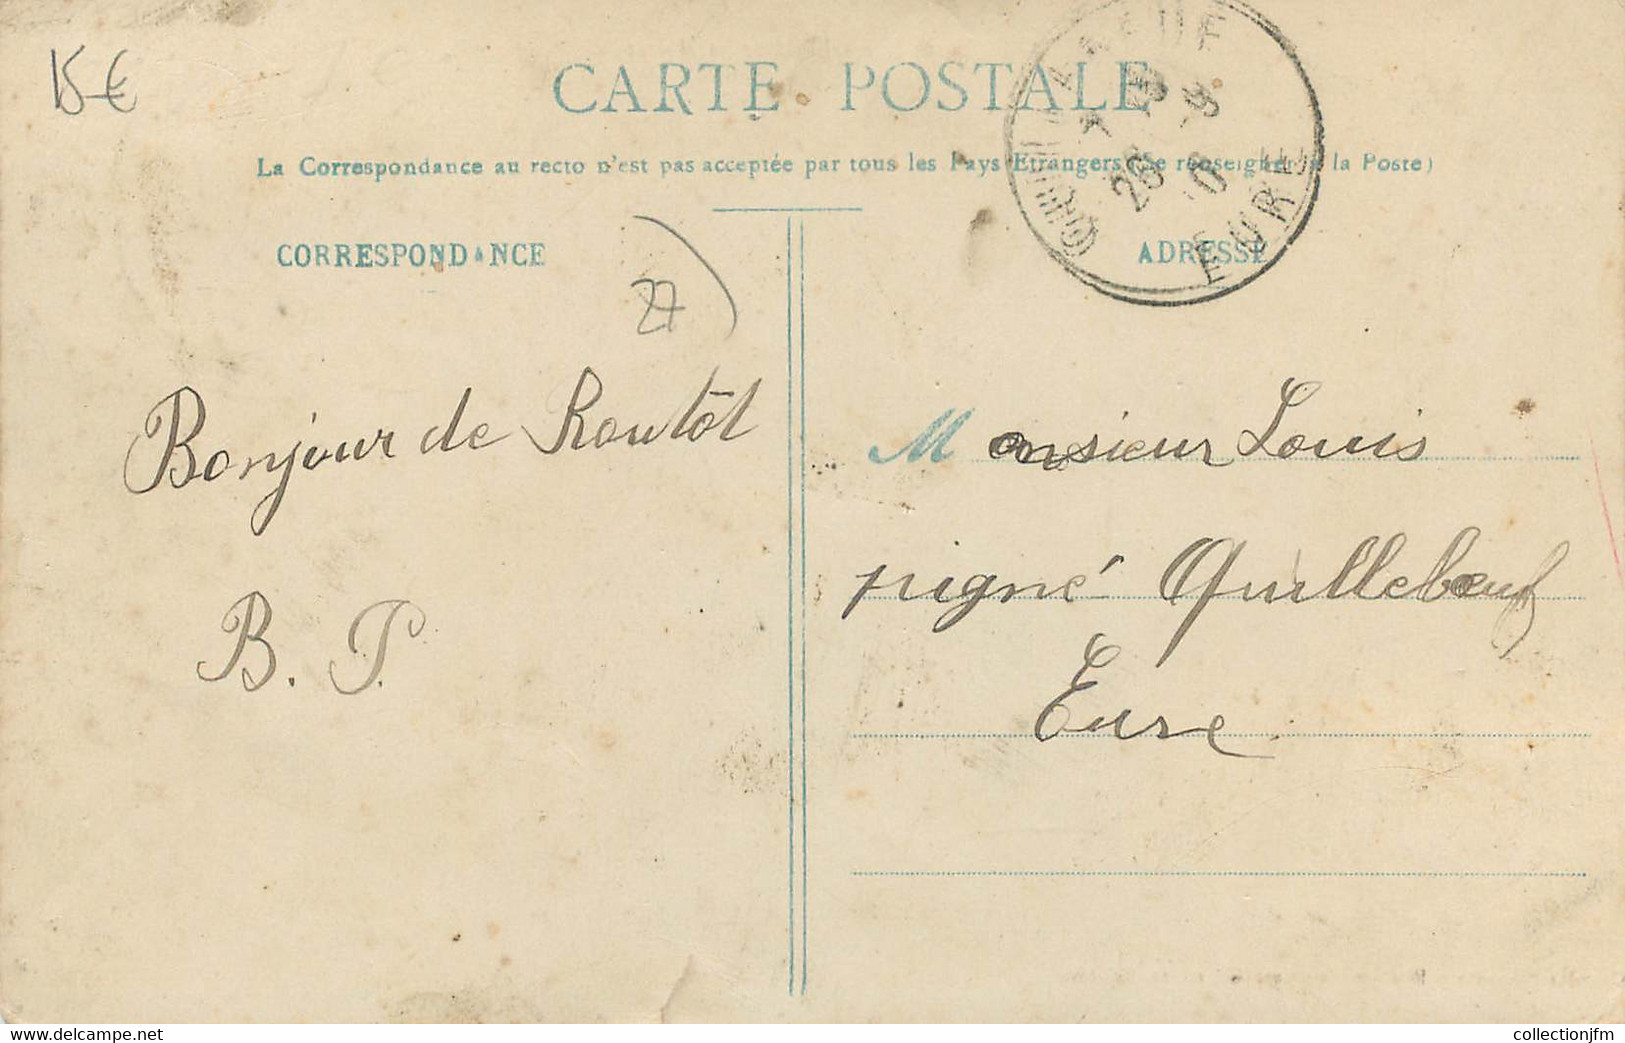 15 €
CARTE POSTALE
La Correspondance au recto n'est pas acceptée par tous les Pays Etrangers (Se renseigner à la Poste)
CORRESPONDANCE
ADRESSE
27
EURE
26
Bonjour de Routôt
B. P.
Monsieur Louis
pigné Quillebœuf
Eure
delcampe.net
collectionjfm